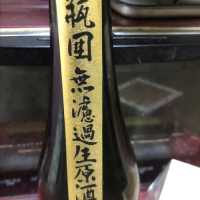 瓶囲無濾過生原酒